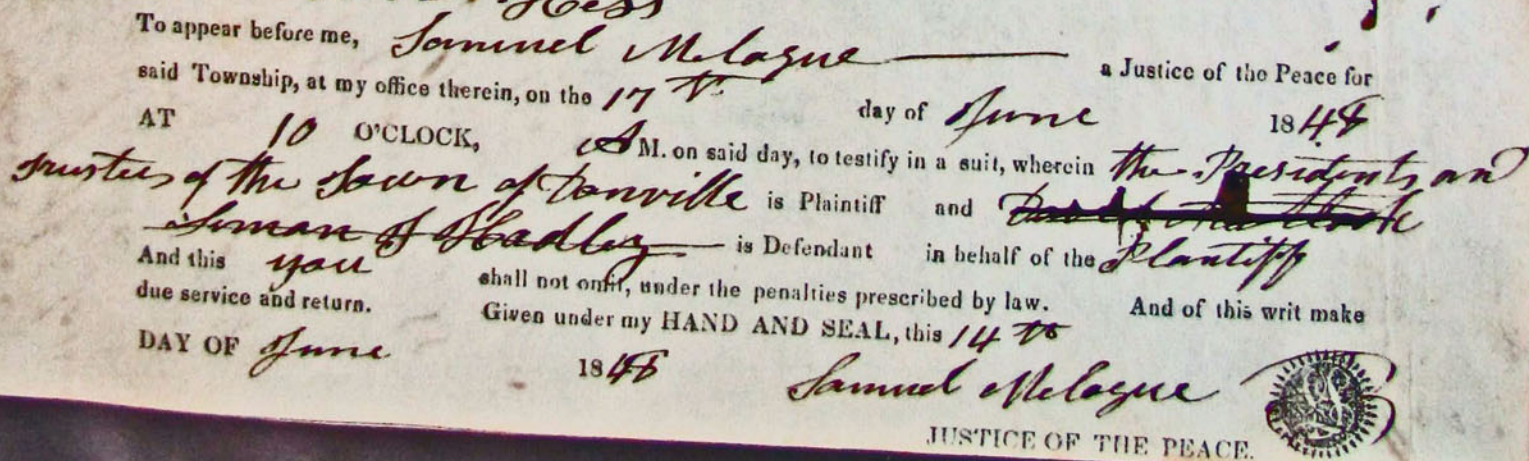 Hess
To appear before me, Samuel Mclague a Justice of the Peace for
said Township, at my office therein, on the 17th day of June 1848
AT 10 O'CLOCK, A M. on said day, to testify in a suit, wherein the Presidents and
Trustees of the Town of Danville is Plaintiff and
Hadley is Defendant in behalf of the Plantiff
And this you shall not omit, under the penalties prescribed by law. And of this writ make
due service and return. Given under my HAND AND SEAL, this 14th
DAY OF June 1848
Samuel Mclague
JUSTICE OF THE PEACE.